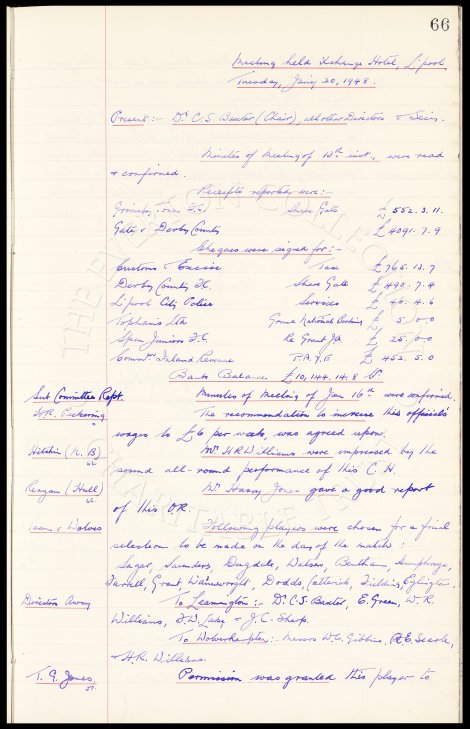 66
Meeting held Xchange Hotel, L'pool,
Tuesday, Jan'y 20, 1948.
Present:- Dr. C. S. Baxter (Chair), all other Directors & Secy.
Minutes of Meeting of 13th inst., were read
& confirmed.
Receipts reported were:-
Grimsby Town F.C. Share Gate £ 552. 3. 11.
Gate v Derby County £ 4091. 7. 9
Cheques were signed for:-
Customs & Excise Tax £ 765. 13. 7
Derby County F.C. Share Gate £ 490. 7. 4
L'pool City Police Services £ 46. 4. 6
Tophams Ltd Grand National Parking £ 5/0/0
Spen Juniors F.C. Re Grant JA £ 25/0/0
Commrs Inland Revenue P.A.Y.E £ 452. 5. 0
Bank Balance £10,144. 14. 8
Sub Committee Rept. Minutes of Meeting of Jan 16th were confirmed.
H.R. Pickering The recommendation to increase this official's
wages to £6 per week, was agreed upon.
Hitchin (N. B) Mr H R Williams were impressed by the
sound all-round performance of this C. H.
Reagan (Hull) Mr Harry Jones gave a good report
of this O.R.
Team v Wolves Following players were chosen for a final
selection to be made on the day of the match:
Sagar, Saunders, Dugdale, Watson, Bentham, Humphreys,
Farrell, Grant Wainwright, Dodds, Catterick, Fielding, Eglington.
Directors Away To Leamington:- Dr. C. S. Baxter, E. Green, W. R.
Williams, & J. C. Sharp.
To Wolverhampton:- Messrs W. C. Gibbins, R. E. Searle,
& H. R. Williams.
T. G. Jones Permission was granted this player to
THE EVERTON COLLECTION
CHARITABLE TRUST